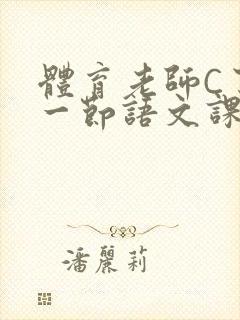 體育老師C
一節語文課
潘麗莉